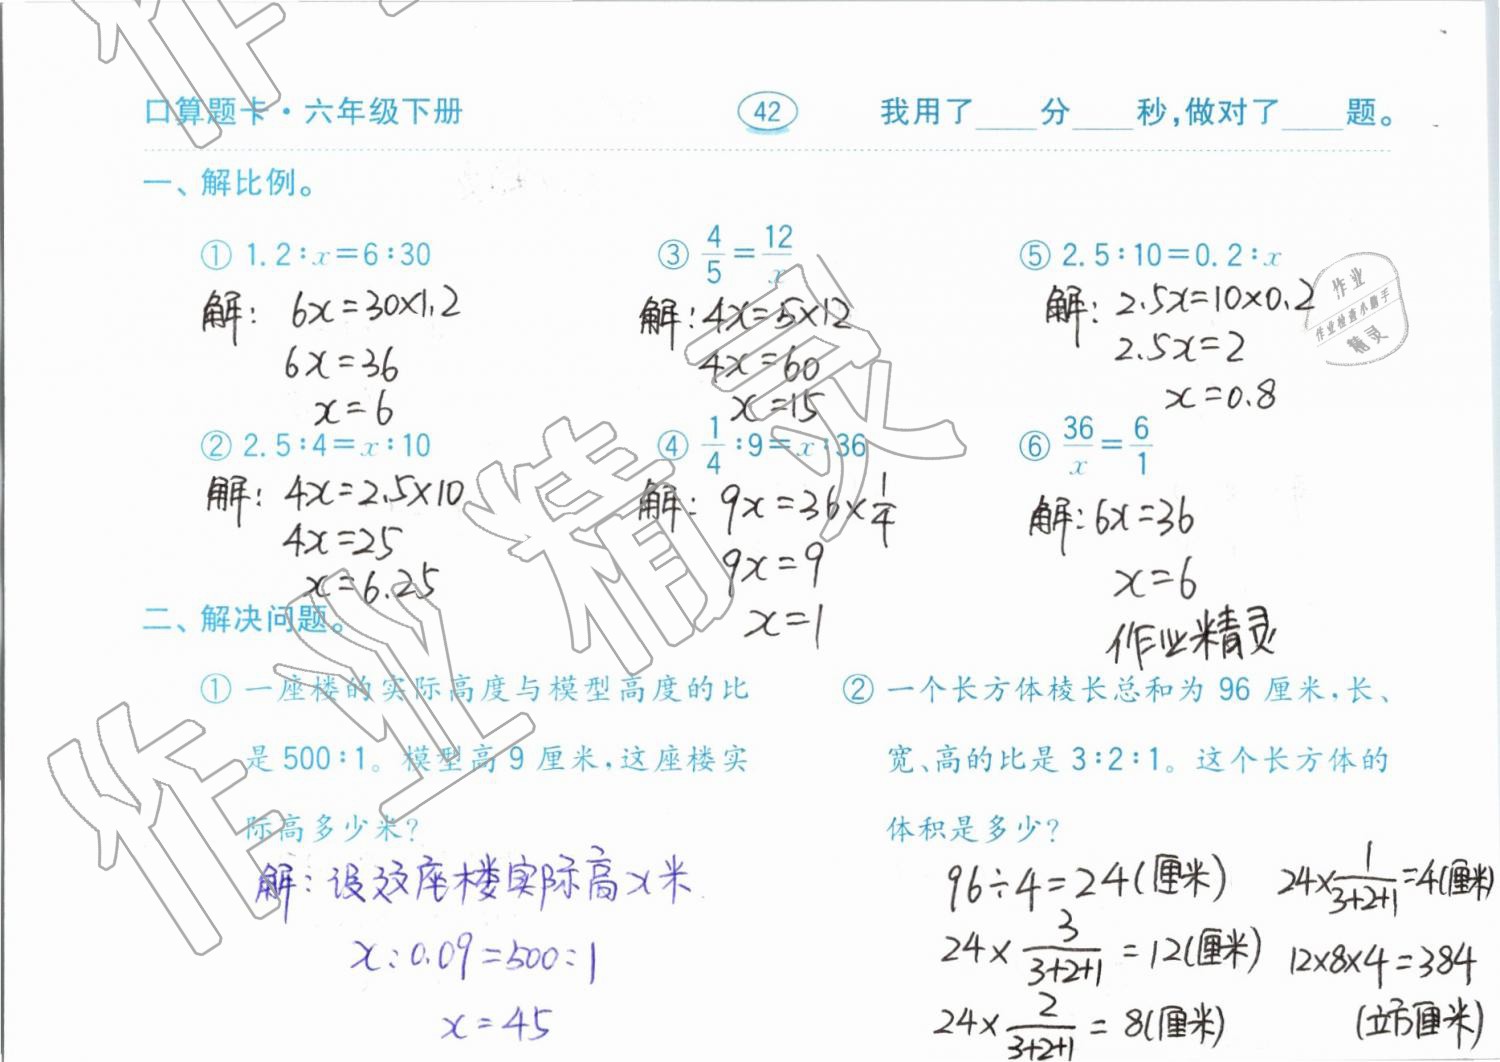 口算题卡·六年级下册 42 我用了____分____秒,做对了____题。
一、解比例。
① 1.2∶x=6∶30
解: 6x=30×1.2
6x=36
x=6
② 2.5∶4=x∶10
解: 4x=2.5×10
4x=25
x=6.25
③ 4/5=12/x
解: 4x=5×12
4x=60
x=15
④ 1/4∶9=x∶36
解: 9x=36×1/4
9x=9
x=1
⑤ 2.5∶10=0.2∶x
解: 2.5x=10×0.2
2.5x=2
x=0.8
⑥ 36/x=6/1
解: 6x=36
x=6
作业精灵
二、解决问题。
① 一座楼的实际高度与模型高度的比
是 500∶1。模型高 9 厘米,这座楼实
际高多少米?
解: 设这座楼实际高x米
x:0.09=500:1
x=45
② 一个长方体棱长总和为 96 厘米,长、
宽、高的比是 3∶2∶1。这个长方体的
体积是多少?
96÷4=24(厘米)
24×3/(3+2+1)=12(厘米)
24×2/(3+2+1)=8(厘米)
24×1/(3+2+1)=4(厘米)
12×8×4=384
(立方厘米)
作业
作业检查小助手
精灵
作业精灵